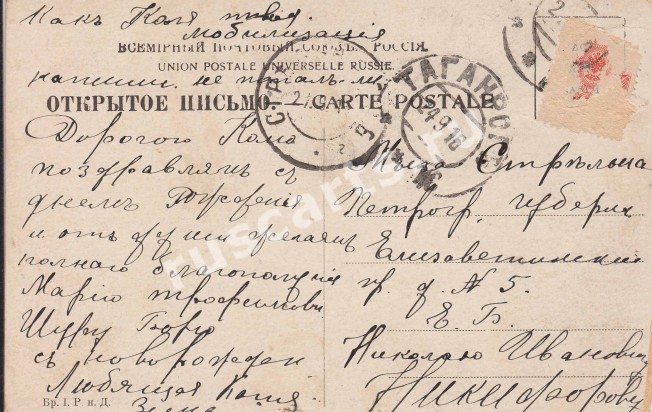 Какъ Коля твоя
мобилизація
ВСЕМІРНЫЙ ПОЧТОВЫЙ СОЮЗЪ. РОССІЯ.
UNION POSTALE UNIVERSELLE RUSSIE.
напиши не
ОТКРЫТОЕ ПИСЬМО. — CARTE POSTALE
ТАГАНРОГЪ
24 9 16
Дорогого Колю
поздравляемъ съ
днемъ Рожденія
и отъ души желаемъ
полнаго благополучія
Марію Трофимовн
Шуру Борю
съ новорожден
Любящая Катя
Бр. І. Р и. Д.
Мыза Стрѣльна
Петрогр. Губерніи
Елизаветинская
д. № 5.
Е. Б.
Николаю Ивановичу
Никифорову
ruscarts.ru